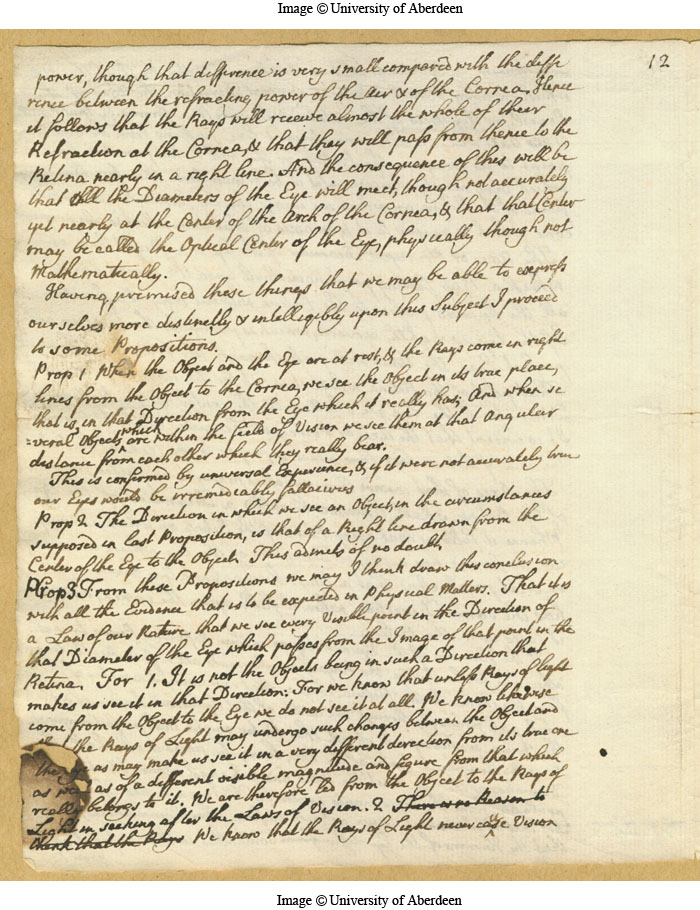 Image © University of Aberdeen
12
power, though that difference is very small compared with the diffe
rence between the refracting power of the air & of the Cornea. Hence
it follows that the Rays will receive almost the whole of their
Refraction at the Cornea, & that they will pass from thence to the
Retina nearly in a right line. And the consequence of this will be
that all the Diameters of the Eye will meet, though not accurately
yet nearly at the Center of the Arch of the Cornea, & that that Center
may be called the Optical Center of the Eye, physically though not
Mathematically.
Having premised these things that we may be able to express
ourselves more distinctly & intelligibly upon this Subject I proceed
to some Propositions.
Prop 1 When the Object and the Eye are at rest, & the Rays come in right
lines from the Object to the Cornea, we see the Object in its true place,
that is, in that Direction from the Eye which it really has; And when se
=veral Objects which are within the field of Vision we see them at that Angular
distance from each other which they really bear.
This is confirmed by universal Experience, & if it were not accurately true
our Eyes would be irremediably fallacious
Prop 2 The Direction in which we see an Object, in the circumstances
supposed in last Proposition, is that of a Right line drawn from the
Center of the Eye to the Object. This admits of no doubt.
Prop 3 From these Propositions we may I think draw this conclusion
with all the Evidence that is to be expected in Physical Matters. That it is
a Law of our Nature that we see every Visible point in the Direction of
that Diameter of the Eye which passes from the Image of that point in the
Retina. For 1. It is not the Objects being in such a Direction that
makes us see it in that Direction: For we know that unless Rays of light
come from the Object to the Eye we do not see it at all. We know likewise
the Rays of Light may undergo such changes between the Object and
the Eye as may make us see it in a very different direction from its true one
as well as of a different visible magnitude and figure from that which
really belongs to it. We are therefore led from the Object to the Rays of
Light in seeking after the Laws of Vision. 2 There is no Reason to
think that the Rays We know that the Rays of Light never cause Vision
Image © University of Aberdeen